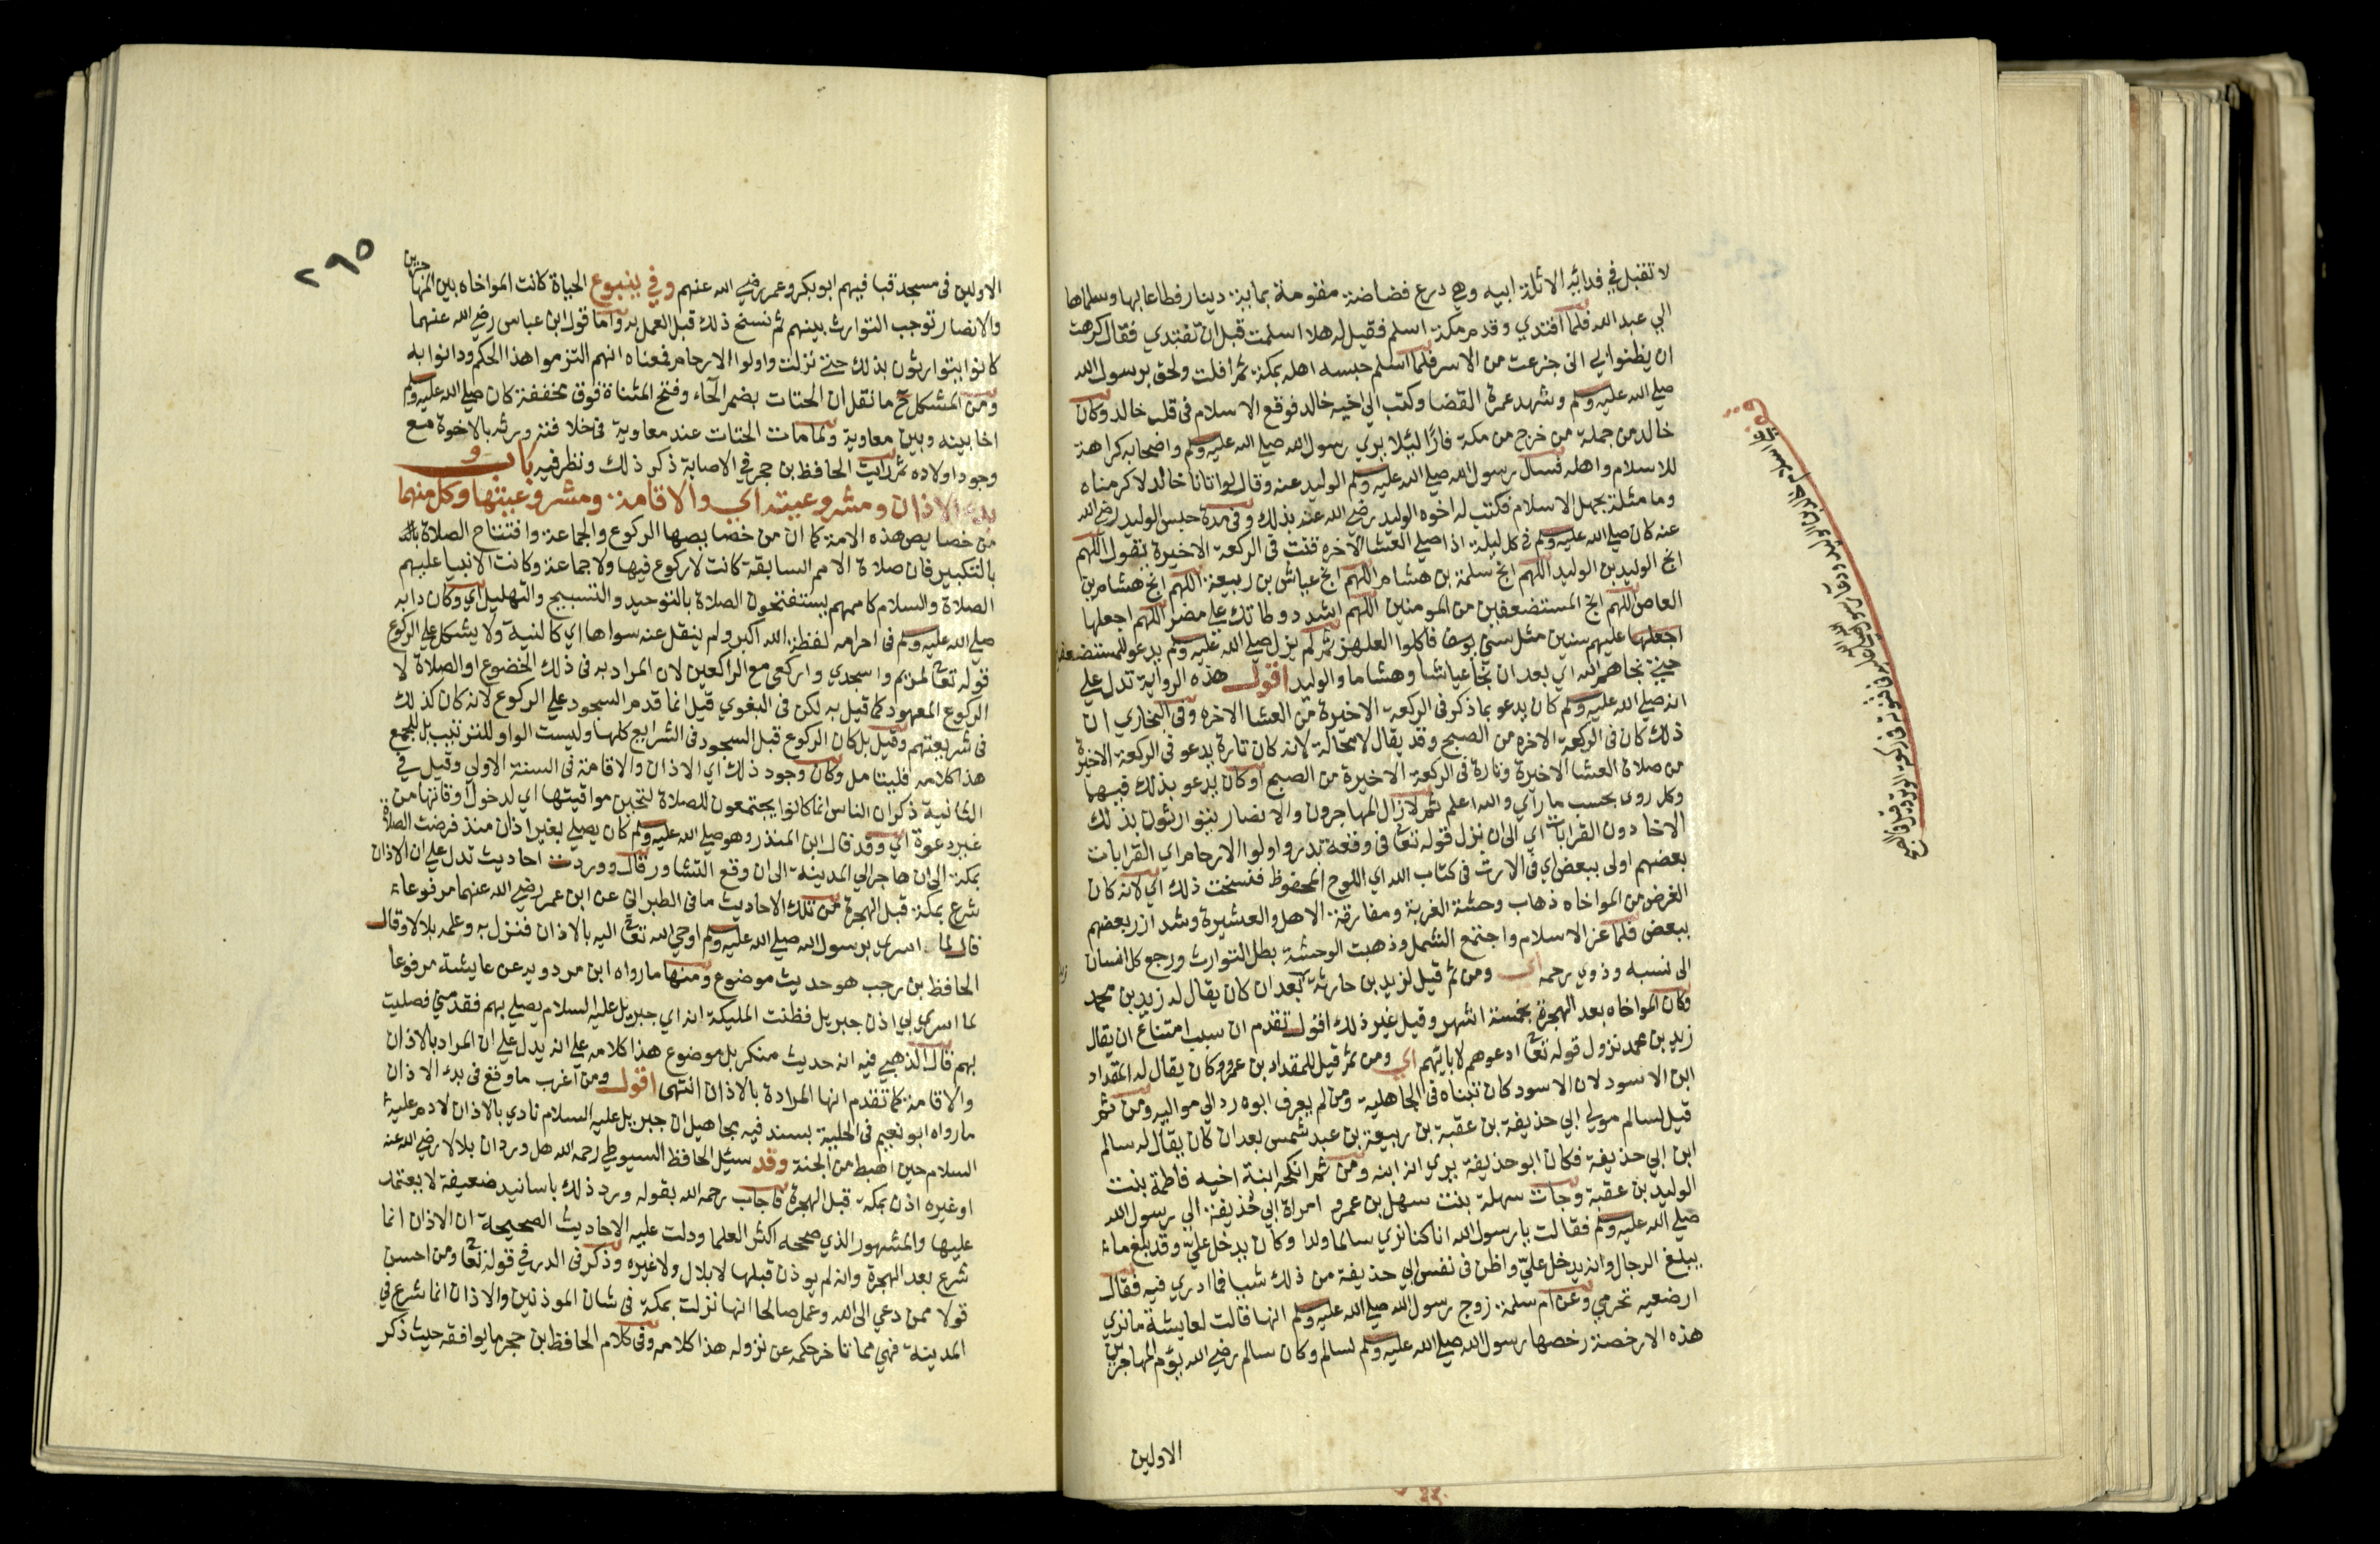 لا تقبل في فدائه الا ثلة ابيه وهي درع فضاضة مقومة بماية دينار فطاعا بها وسلماها
الى عبد الله فلما افتدي وقدم مكة اسلم فقيل له هلا اسلمت قبل ان تفتدي فقال كرهت
ان يظنوا بي انى جزعت من الاسر فلما اسلم حبسه اهله بمكة ثم افلت ولحق برسول الله
صلى الله عليه وسلم وشهد عمرة القضا وكتب الى اخيه خالد فوقع الاسلام فى قلب خالد وكان
خالد من جملة من خرج من مكة فارًا لئلا يري رسول الله صلى الله عليه وسلم واصحابه كراهة
للاسلام واهله فسال رسول الله صلى الله عليه وسلم الوليد عنه وقال لو اتانا خالد لاكرمناه
وما مثله يجهل الاسلام فكتب له اخوه الوليد رضي الله عنه بذلك وفى مدة حبس الوليد رضي الله
عنه كان صلى الله عليه وسلم فى كل ليلة اذا صلى العشا الاخره قنت فى الركعة الاخيرة يقول اللهم
انج الوليد بن الوليد اللهم انج سلمة بن هشام اللهم انج عياش بن ربيعة اللهم انج هشام بن
العاص اللهم انج المستضعفين من المومنين اللهم اشدد وطاتك على مضر اللهم اجعلها
اجعلها عليهم سنين مثل سني يوسف فاكلوا العلهز ثم لم يزل صلى الله عليه وسلم يدعو للمستضعفين
حتى نجاهم الله اي بعد ان نجا عياشا وهشاما والوليد اقول هذه الرواية تدل على
انه صلى الله عليه وسلم كان يدعو بما ذكر فى الركعة الاخيرة من العشا الاخره وفى البخاري ان
ذلك كان فى الركعة الاخره من الصبح وقد يقال لا مخالفة لانه كان تارة يدعو فى الركعة الاخيرة
من صلاة العشا الاخيرة وتارة فى الركعة الاخيرة من الصبح او كان يدعو بذلك فيهما
وكل روى بحسب ما رآي والله اعلم ثم لا زال المهاجرون والانصار يتوارثون بذلك
الاخا دون القرابات اي الى ان نزل قوله تعالى فى وقعة بدر واولوا الارحام اي القرابات
بعضهم اولى ببعض اي فى الارث فى كتاب الله اي اللوح المحفوظ فنسخت ذلك اي لانه كان
الغرض من المواخاه ذهاب وحشة الغربة ومفارقة الاهل والعشيرة وشد ازر بعضهم
ببعض فلما عز الاسلام واجتمع الشمل وذهبت الوحشة بطل التوارث ورجع كل انسان
الى نسبه وذوي رحمه اي ومن ثم قيل لزيد بن حارثة بعد ان كان يقال له زيد بن محمد
وكان المواخاه بعد الهجرة بخمسة اشهر وقيل غير ذلك اقول تقدم ان سبب امتناع ان يقال
زيد بن محمد نزول قوله تعالى ادعوهم لابائهم اي ومن ثم قيل للمقداد بن عمرو وكان يقال له المقداد
ابن الاسود لان الاسود كان تبناه فى الجاهلية ومن لم يعرف ابوه رد الى مواليه ومن ثم
قيل لسالم مولى ابي حذيفة بن عقبة بن ربيعة بن عبد شمس بعد ان كان يقال له سالم
ابن ابي حذيفة فكان ابو حذيفة يري انه ابنه ومن ثم انكحه ابنة اخيه فاطمة بنت
الوليد بن عقبة وجات سهلة بنت سهل بن عمرو امراة ابي حذيفة الى رسول الله
صلى الله عليه وسلم فقالت يا رسول الله انا كنا نري سالما ولدا وكان يدخل علي وقد بلغ ما
يبلغ الرجال وانه يدخل علي واظن فى نفس ابي حذيفة من ذلك شيا فما ادري فيه فقال
ارضعيه تحرمي وعن ام سلمة زوج رسول الله صلى الله عليه وسلم انها قالت لعايشة ما نري
هذه الا رخصة رخصها رسول الله صلى الله عليه وسلم لسالم وكان سالم رضي الله يؤم المهاجرين
الاولين
٢٩٥
الاولين فى مسجد قبا فيهم ابو بكر وعمر رضي الله عنهم وفي ينبوع الحياة كانت المواخاه بين المهاجرين
والانصار توجب التوارث بينهم ثم نسخ ذلك قبل العمل به واما قول ابن عباس رضي الله عنهما
كانوا يتوارثون بذلك حتى نزلت واولوا الارحام فمعناه انهم التزموا هذا الحكم ودانوا به
ومن المشكل ح ما نقل ان الحتات بضم الحاء وفتح المثناة فوق مخففة كان صلى الله عليه وسلم
اخا بينه وبين معاوية ولما مات الحتات عند معاوية فى خلافته ورثه بالاخوة مع
وجود اولاده ثم رايت الحافظ بن حجر فى الاصابة ذكر ذلك ونظر فيه باب
بدء الاذان ومشروعيته اي والاقامة ومشروعيتها وكل منهما
من خصايص هذه الامة كما ان من خصايصها الركوع والجماعة وافتتاح الصلاة
بالتكبير فان صلاة الامم السابقة كانت لا ركوع فيها ولا جماعة وكانت الانبيا عليهم
الصلاة والسلام كاممهم يستفتحون الصلاة بالتوحيد والتسبيح والتهليل اي وكان دابه
صلى الله عليه وسلم فى احرامه لفظة الله اكبر ولم ينقل عنه سواها اي كالنية ولا يشكل على الركوع
قوله تعالى لمريم واسجدي واركعى مع الراكعين لان المراد به فى ذلك الخضوع او الصلاة لا
الركوع المعهود كما قيل به لكن فى البغوي قيل انما قدم السجود على الركوع لانه كان كذلك
فى شريعتهم وقيل بل كان الركوع قبل السجود فى الشرايع كلها وليست الواو للترتيب بل للجمع
هذا كلامه فليتامل وكان وجود ذلك اي الاذان والاقامة فى السنة الاولى وقيل في
الثانية ذكر ان الناس انما كانوا يجتمعون للصلاة لتحين مواقيتها اي لدخول اوقاتها من
غير دعوة اي وقد قال ابن المنذر وهو صلى الله عليه وسلم كان يصلي بغير اذان منذ فرضت الصلاة
بمكة الى ان هاجر الى المدينة الى ان وقع التشاور قال ووردت احاديث تدل على ان الاذان
شرع بمكة قبل الهجرة من تلك الاحاديث ما فى الطبراني عن ابن عمر رضي الله عنهما مرفوعا
قال لما اسري برسول الله صلى الله عليه وسلم اوحي الله تعالى اليه بالاذان فنزل به وعلمه بلالا وقال
الحافظ بن رجب هو حديث موضوع ومنها ما رواه ابن مردويه عن عايشة مرفوعا
لما اسري بي اذن جبريل فظنت المليكة انه اي جبريل عليه السلام يصلي بهم فقدمني فصليت
بهم قال الذهبي فيه انه حديث منكر بل موضوع هذا كلامه على انه يدل على ان المراد بالاذان
والاقامة كما تقدم انها المرادة بالاذان انتهى اقول ومن اغرب ما وقع فى بدء الاذان
ما رواه ابو نعيم فى الحلية بسند فيه مجاهيل ان جبريل عليه السلام نادي بالاذان لادم عليه
السلام حين اهبط من الجنة وقد سئل الحافظ السيوطي رحمه الله هل ورد ان بلالا رضي الله عنه
او غيره اذن بمكة قبل الهجرة فاجاب رحمه الله بقوله ورد ذلك باسانيد ضعيفة لا يعتمد
عليها والمشهور الذي صححه اكثر العلما ودلت عليه الاحاديث الصحيحة ان الاذان انما
شرع بعد الهجرة وانه لم يوذن قبلها لا بلال ولا غيره وذكر فى الدر في قوله تعالى ومن احسن
قولا ممن دعي الى الله وعمل صالحا انها نزلت بمكة فى شان الموذنين والاذان انما شرع في
المدينة فهي مما تاخر حكمه عن نزوله هذا كلامه وفى كلام الحافظ بن حجر ما يوافقه حيث ذكر